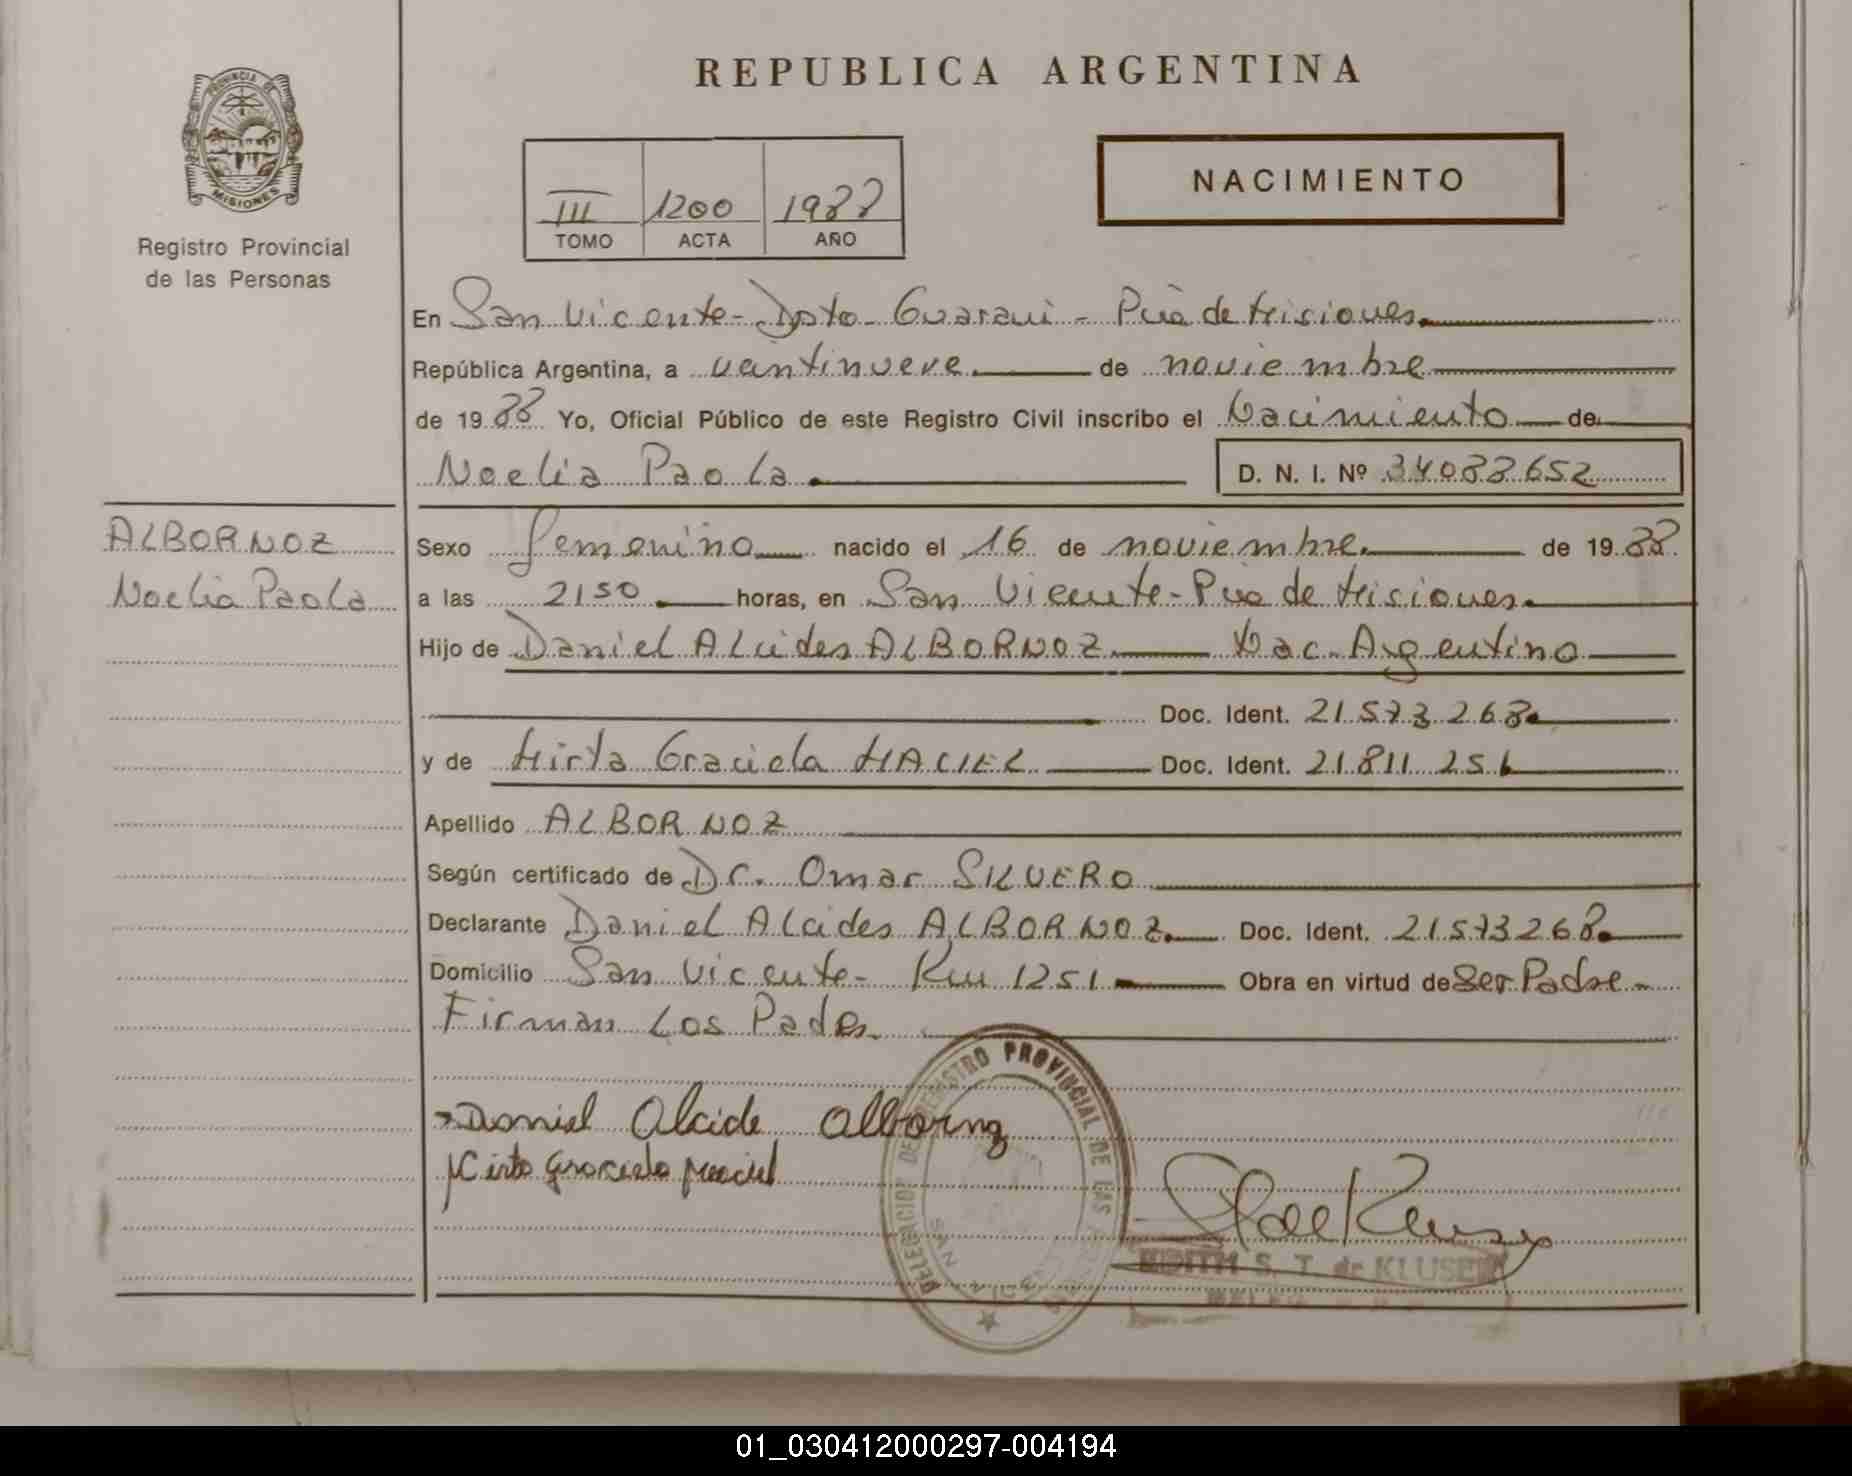 PROVINCIA DE
MISIONES
Registro Provincial
de las Personas
REPUBLICA ARGENTINA
III 1200 1988
TOMO ACTA AÑO
NACIMIENTO
En San Vicente - Dpto - Guarani - Pcia de Misiones
República Argentina, a veintinueve de noviembre
de 1988 Yo, Oficial Público de este Registro Civil inscribo el Nacimiento de
Noelia Paola D. N. I. Nº 34088652
ALBORNOZ
Noelia Paola
Sexo femenino nacido el 16 de noviembre de 1988
a las 2150 horas, en San Vicente - Pcia de Misiones
Hijo de Daniel Alcides ALBORNOZ Nac. Argentino
Doc. Ident. 21.573.268
y de Mirta Graciela MACIEL Doc. Ident. 21.811.251
Apellido ALBORNOZ
Según certificado de Dr. Omar SILVERO
Declarante Daniel Alcides ALBORNOZ Doc. Ident. 21573268
Domicilio San Vicente - Km 1251 Obra en virtud de Ser Padre
Firman Los Pades
Daniel Alcide Albornoz
Mirta Graciela Maciel
DELEGACION DEL REGISTRO PROVINCIAL DE LAS
EDITH S. T. de KLUSEN
01_030412000297-004194